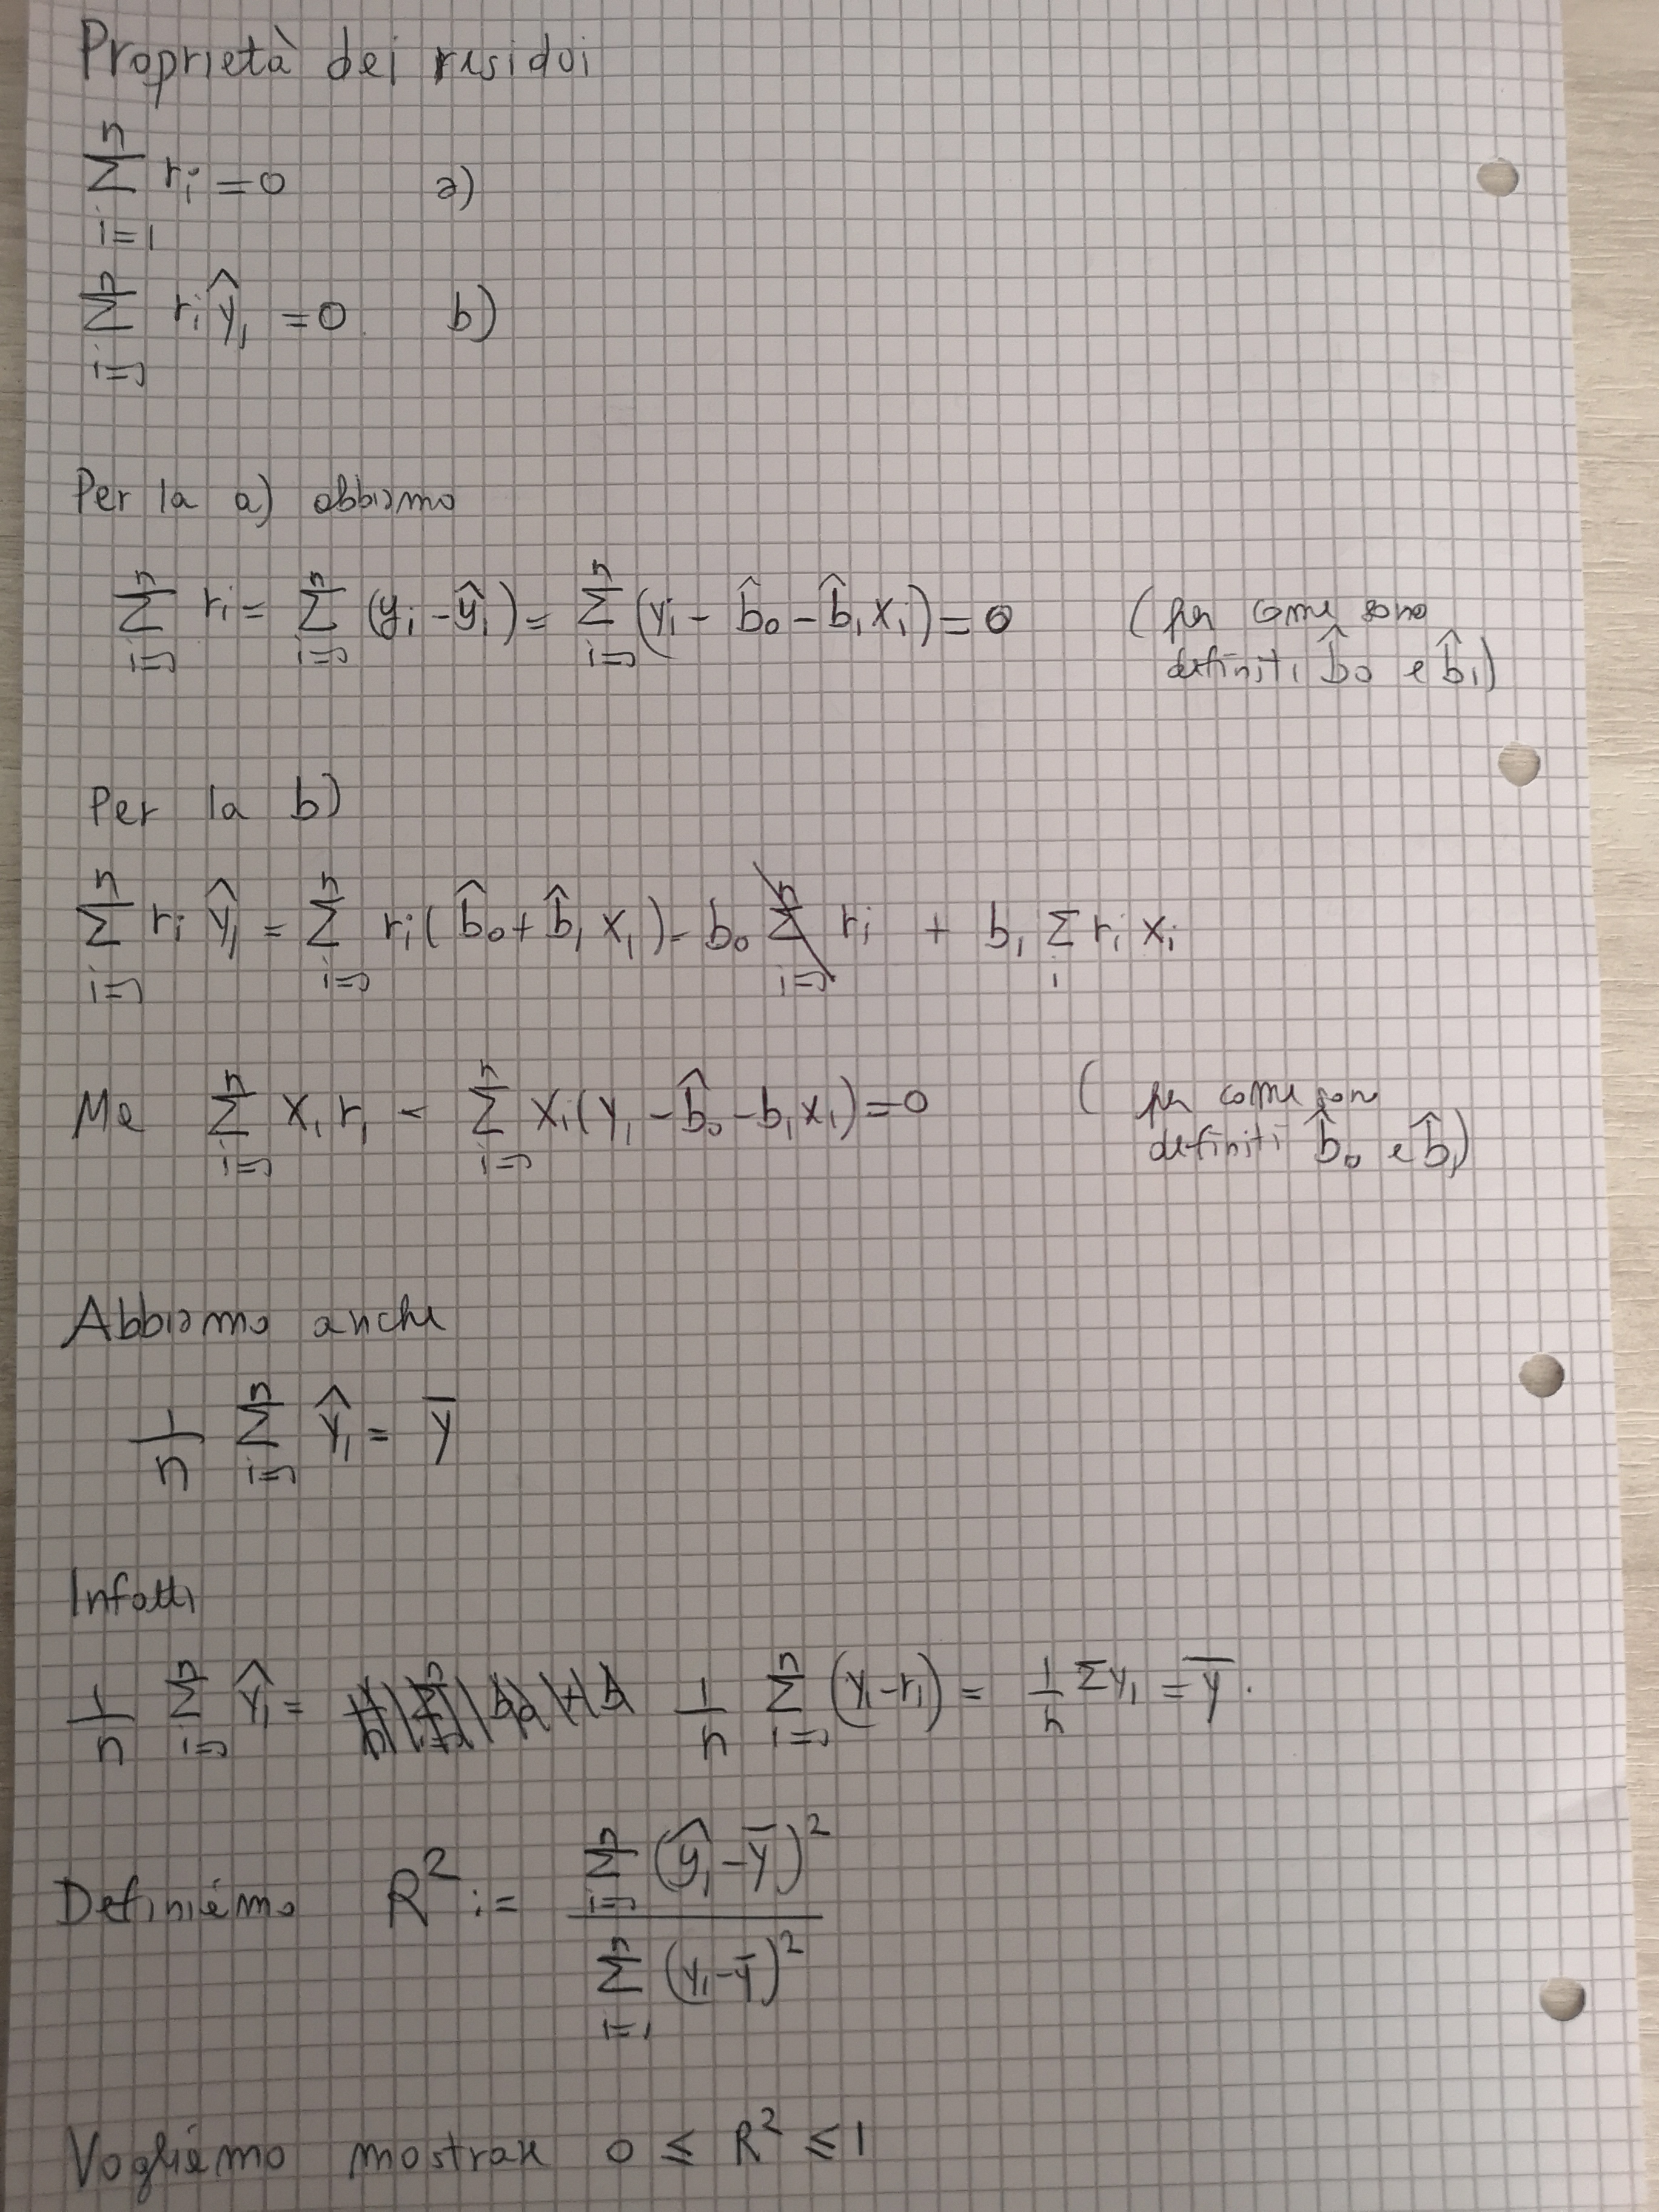 Proprietà dei residui
∑_{i=1}^{n} r_i = 0 a)
∑_{i=1}^{n} r_i ŷ_i = 0 b)
Per la a) abbiamo
∑_{i=1}^{n} r_i = ∑_{i=1}^{n} (y_i - ŷ_i) = ∑_{i=1}^{n} (y_i - b̂_0 - b̂_1 x_i) = 0 (per come sono
definiti b̂_0 e b̂_1)
Per la b)
∑_{i=1}^{n} r_i ŷ_i = ∑_{i=1}^{n} r_i (b̂_0 + b̂_1 x_i) = b_0 ∑_{i=1}^{n} r_i + b_1 ∑_i r_i x_i
Ma ∑_{i=1}^{n} x_i r_i = ∑_{i=1}^{n} x_i (y_i - b̂_0 - b_1 x_i) = 0 (per come sono
definiti b̂_0 e b̂_1)
Abbiamo anche
1/n ∑_{i=1}^{n} ŷ_i = ȳ
Infatti
1/n ∑_{i=1}^{n} ŷ_i = 1/n ∑_{i=1}^{n} (y_i - r_i) = 1/n ∑ y_i = ȳ.
Definiamo R² := ∑_{i=1}^{n} (ŷ_i - ȳ)² / ∑_{i=1}^{n} (y_i - ȳ)²
Vogliamo mostrare 0 ≤ R² ≤ 1